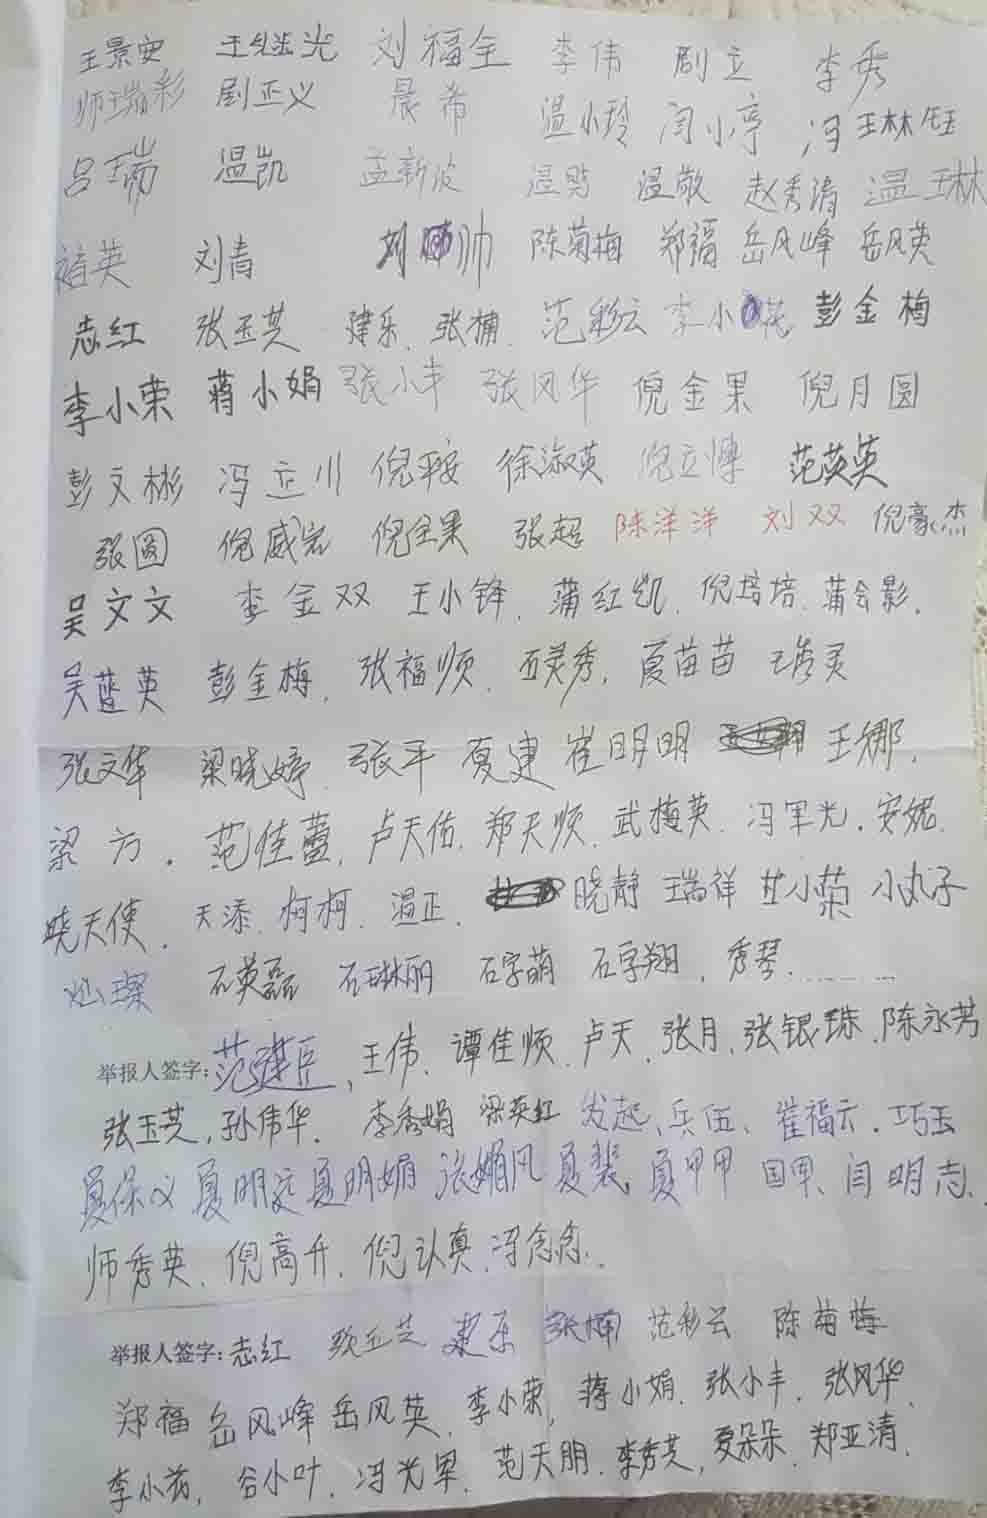 王景安 王继光 刘福全 李伟 剧立 李秀
师瑞彩 剧正义 晨希 温小玲 闫小亭 冯王林钰
吕瑞 温凯 孟新波 温敬 赵秀涛 温王林
褚英 刘青 刘帅 陈菊梅 郑福 岳风峰 岳风英
志红 张玉芝 建乐. 张楠. 范彩云 李小花 彭金梅
李小荣 蒋小娟 张小丰 张风华 倪金果 倪月圆
彭文彬 冯立川 倪平安 徐淑英 倪立博 范英英
张圆 倪威宏 倪全果 张超 陈洋洋 刘双 倪豪杰
吴文文 李金双 王小锋. 蒲红凯. 倪培培. 蒲会影.
吴蓝英 彭金梅. 张福顺. 石灵秀. 夏苗苗 王秀灵
张文华 梁晓婷. 张平 夏建 崔明明 王娜.
梁方. 范佳蕾. 卢天佑. 郑天顺. 武梅英. 冯军光. 安妮.
晓天使. 天添. 柯柯. 温正. 晓静 王瑞祥 甘小荣 小丸子
灿璨 石英磊 石琳丽 石字萌 石字翔. 秀琴. ……
举报人签字: 范建臣、王伟. 谭佳顺. 卢天. 张月. 张银珠. 陈永芳
张玉芝, 孙伟华. 李秀娟 梁英红 发起、兵伍、崔福云. 巧玉
夏保义 夏明远 夏明娟 张媚风 夏裴. 夏甲甲 国军、闫明志.
师秀英. 倪高升. 倪认真. 冯念念.
举报人签字: 志红 张玉芝 建乐 张楠 范彩云 陈菊梅
郑福 岳风峰 岳风英. 李小荣, 蒋小娟. 张小丰. 张风华.
李小花, 谷小叶. 冯光军. 范天朋. 李秀芝, 夏朵朵. 郑亚清.